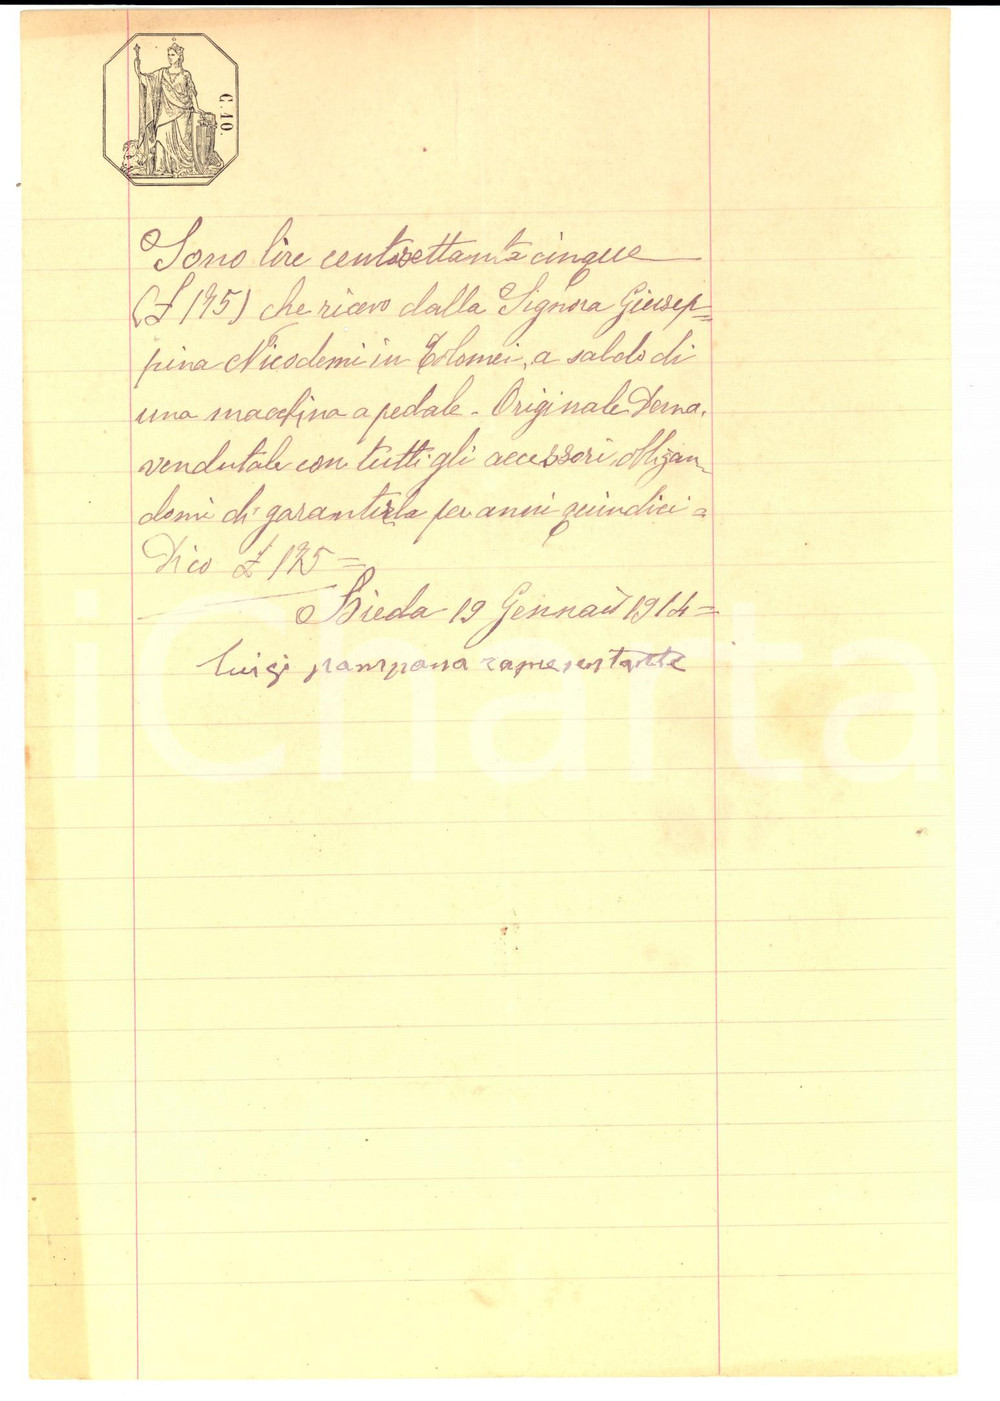 C. 10.
Sono lire centosettantacinque
(£ 175) che ricevo dalla Signora Giusep=
pina Nicodemi in Tolomei, a saldo di
una macchina a pedale - Originale Derna,
vendutale con tutti gli accessori, obligan=
domi di garantirla per anni quindici =
Dico £ 175 =
Bieda 19 Gennaio 1914 =
Luigi pampana rapresentante
iCharta